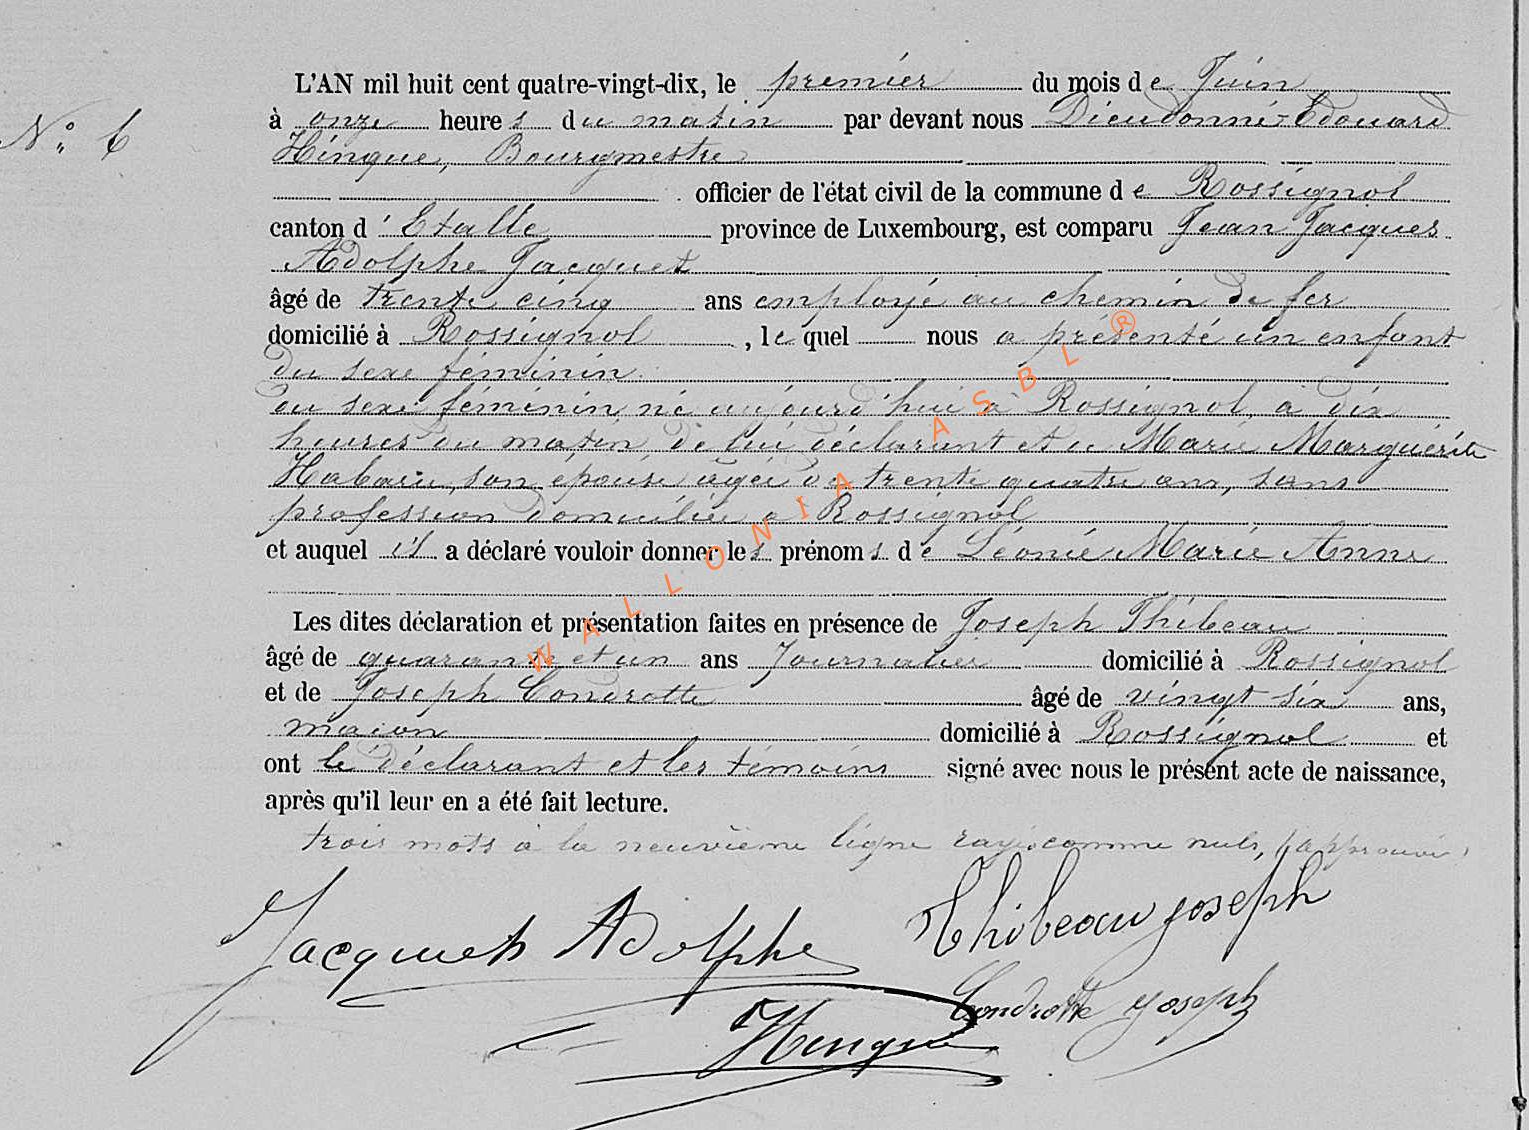 L'AN mil huit cent quatre-vingt-dix, le premier du mois de Juin
N° 6 à onze heures du matin par devant nous Dieudonné-Edouard
Hinque, Bourgmestre
officier de l'état civil de la commune de Rossignol
canton d'Etalle province de Luxembourg, est comparu Jean Jacques
Adolphe Jacquet
âgé de trente cinq ans employé au chemin de fer
domicilié à Rossignol, lequel nous a présenté un enfant
du sexe féminin
du sexe féminin né aujourd'hui à Rossignol, à dix
heures du matin, de lui déclarant et de Marie Marguérite
Habaru, son épouse âgée de trente quatre ans, sans
profession domiciliée à Rossignol
et auquel il a déclaré vouloir donner les prénoms de Léonie Marie Anne
Les dites déclaration et présentation faites en présence de Joseph Thibeau
âgé de quarante et un ans Journalier domicilié à Rossignol
et de Joseph Condrotte âgé de vingt six ans,
maçon domicilié à Rossignol et
ont le déclarant et les témoins signé avec nous le présent acte de naissance,
après qu'il leur en a été fait lecture.
trois mots à la neuvième ligne rayés comme nuls, approuvés
Jacquet Adolphe Thibeau joseph
Condrotte joseph
Hinque
WALLONIA ASBL ®